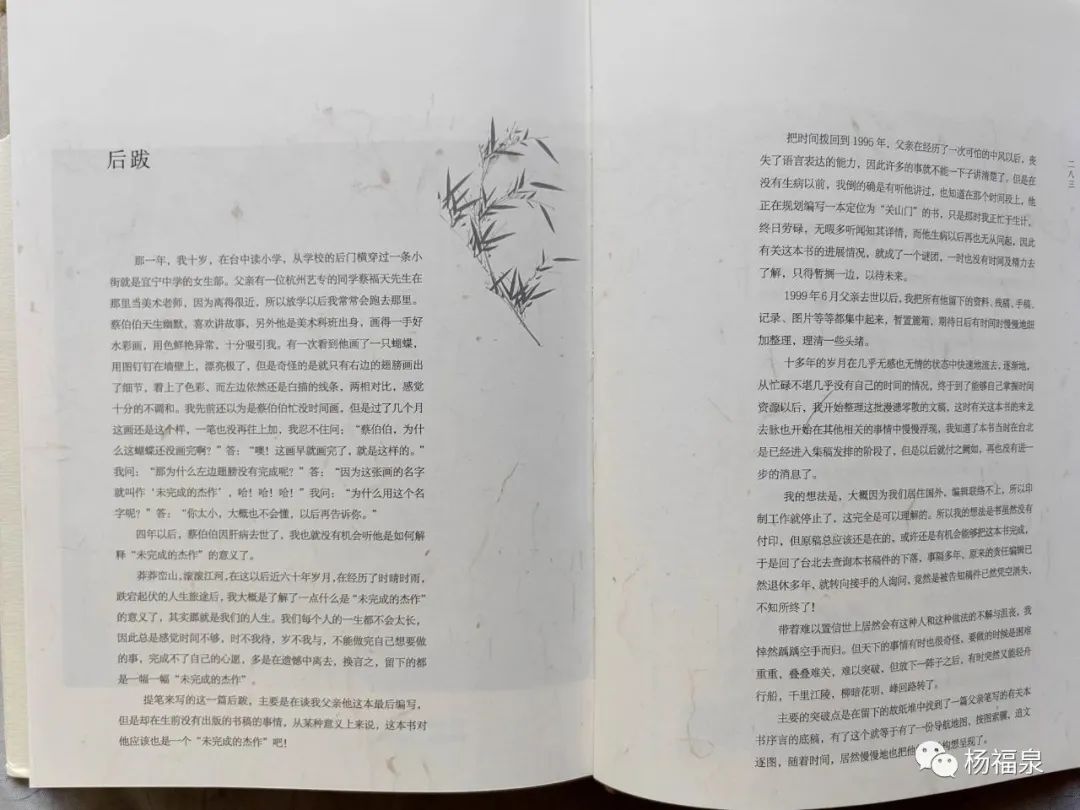 后跋
那一年，我十岁，在台中读小学，从学校的后门横穿过一条小
街就是宜宁中学的女生部。父亲有一位杭州艺专的同学蔡福天先生在
那里当美术老师，因为离得很近，所以放学以后我常常会跑去那里。
蔡伯伯天生幽默，喜欢讲故事，另外他是美术科班出身，画得一手好
水彩画，用色鲜艳异常，十分吸引我。有一次看到他画了一只蝴蝶，
用图钉钉在墙壁上，漂亮极了，但是奇怪的是就只有右边的翅膀画出
了细节，着上了色彩、而左边依然还是白描的线条，两相对比，感觉
十分的不调和。我先前还以为是蔡伯伯忙没时间画，但是过了几个月
这画还是这个样，一笔也没再往上加，我忍不住问：“蔡伯伯，为什
么这蝴蝶还没画完啊？”答：“噢！这画早就画完了，就是这样的。”
我问：“那为什么左边翅膀没有完成呢？”答：“因为这张画的名字
就叫作‘未完成的杰作’，哈！哈！哈！”我问：“为什么用这个名
字呢？”答：“你太小，大概也不会懂，以后再告诉你。”
四年以后，蔡伯伯因肝病去世了，我也就没有机会听他是如何解
释“未完成的杰作”的意义了。
莽莽峦山，滚滚江河，在这以后近六十年岁月，在经历了时晴时雨，
跌宕起伏的人生旅途后，我大概是了解了一点什么是“未完成的杰作”
的意义了，其实那就是我们的人生。我们每个人的一生都不会太长，
因此总是感觉时间不够，时不我待，岁不我与，不能做完自己想要做
的事，完成不了自己的心愿，多是在遗憾中离去，换言之，留下的都
是一幅一幅“未完成的杰作”。
提笔来写的这一篇后跋，主要是在谈我父亲他这本最后编写，
但是却在生前没有出版的书稿的事情，从某种意义上来说，这本书对
他应该也是一个“未完成的杰作”吧！
二八三
把时间拨回到 1996 年，父亲在经历了一次可怕的中风以后，丧
失了语言表达的能力，因此许多的事就不能一下子讲清楚了。但是在
没有生病以前，我倒的确是有听他讲过，也知道在那个时间段上，他
正在规划编写一本定位为“关山门”的书，只是那时我正忙于生计，
终日劳碌，无暇多听闻知其详情，而他生病以后再也无从问起，因此
有关这本书的进展情况，就成了一个谜团，一时也没有时间及精力去
了解，只得暂搁一边，以待未来。
1999 年 6 月父亲去世以后，我把所有他留下的资料、残稿、手稿、
记录、图片等等都集中起来，暂置簏箱，期待日后有时间时慢慢地细
加整理，理清一些头绪。
十多年的岁月在几乎无感也无情的状态中快速地流去，逐渐地，
从忙碌不堪几乎没有自己的时间的情况，终于到了能够自己掌握时间
资源以后，我开始整理这批漫漶零散的文稿，这时有关这本书的来龙
去脉也开始在其他相关的事情中慢慢浮现，我知道了本书当时在台北
是已经进入集稿发排的阶段了，但是以后就付之阙如，再也没有进一
步的消息了。
我的想法是，大概因为我们居住国外，编辑联络不上，所以印
制工作就停止了，这完全是可以理解的。所以我的想法是书虽然没有
付印，但原稿总应该还是在的，或许还是有机会能够把这本书完成，
于是回了台北去查询本书稿件的下落，事隔多年、原来的责任编辑已
然退休多年，就转向接手的人询问，竟然是被告知稿件已然凭空消失，
不知所终了！
带着难以置信世上居然会有这种人和这种做法的不解与沮丧，我
悻然踽踽空手而归。但天下的事情有时也很奇怪，要做的时候是困难
重重，叠叠难关，难以突破，但放下一阵子之后，有时突然又能轻舟
行船，千里江陵，柳暗花明、峰回路转了。
主要的突破点是在留下的故纸堆中找到了一篇父亲笔写的有关本
书序言的底稿，有了这个就等于有了一份导航地图，按图索骥，追文
逐图，随着时间，居然慢慢地也把他 构想呈现了。
杨福泉